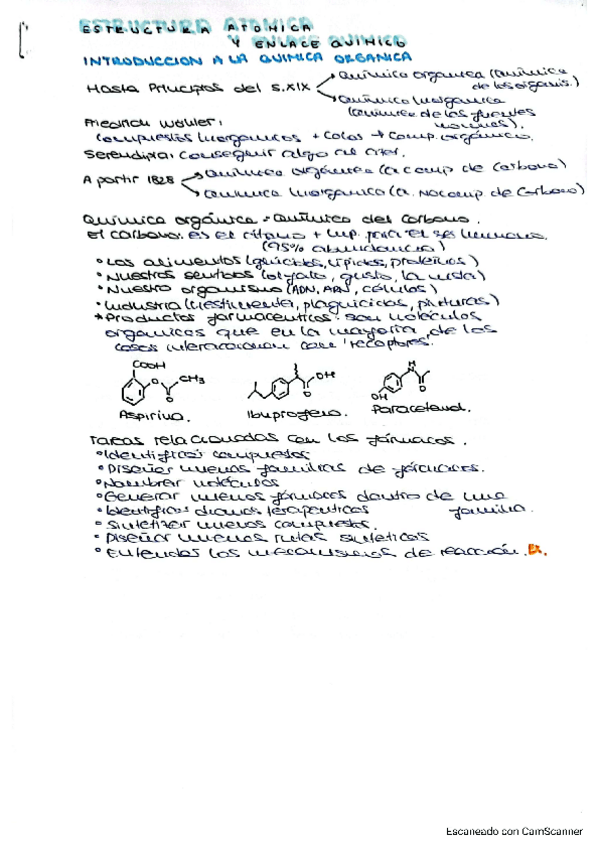 ESTRUCTURA ATOMICA
Y ENLACE QUIMICO
INTRODUCCION A LA QUIMICA ORGANICA
Hasta Principios del S.XIX
Química orgánica (química
de los organis.)
Química Inorgánica
(química de las fuentes
Friedrich Wöhler:
Compuestos Inorganicos + Calor → Comp. orgánico.
Serendipia: Conseguir algo al azar.
A partir 1828
Química orgánica (Q. comp de Carbono)
Química Inorgánica (Q. No comp de Carbono)
Química orgánica = Química del Carbono.
El Carbono: es el átomo + imp. para el ser humano.
(95% abundancia)
• Los alimentos (glúcidos, lípidos, proteínas)
• Nuestros sentidos (olfato, gusto, la vista)
• Nuestro organismo (ADN, ARN, células)
• Industria (vestimenta, plaguicidas, pinturas)
* Productos farmaceuticos: son moléculas
orgánicas que en la mayoría de los
casos interaccionan con 'receptores'.
COOH
O
CH3
O
OH
O
H
N
O
OH
Aspirina.
Ibuprofeno.
Paracetamol.
Tareas relacionadas con los fármacos.
• Identificar compuestos
• Diseñar nuevas familias de fármacos.
• Nombrar moléculas
• Generar nuevos fármacos dentro de una
familia.
• Identificar dianas terapeuticas
• Sintetizar nuevos compuestos.
• Diseñar nuevas rutas sintéticas
• Entender los mecanismos de reacción.
Escaneado con CamScanner